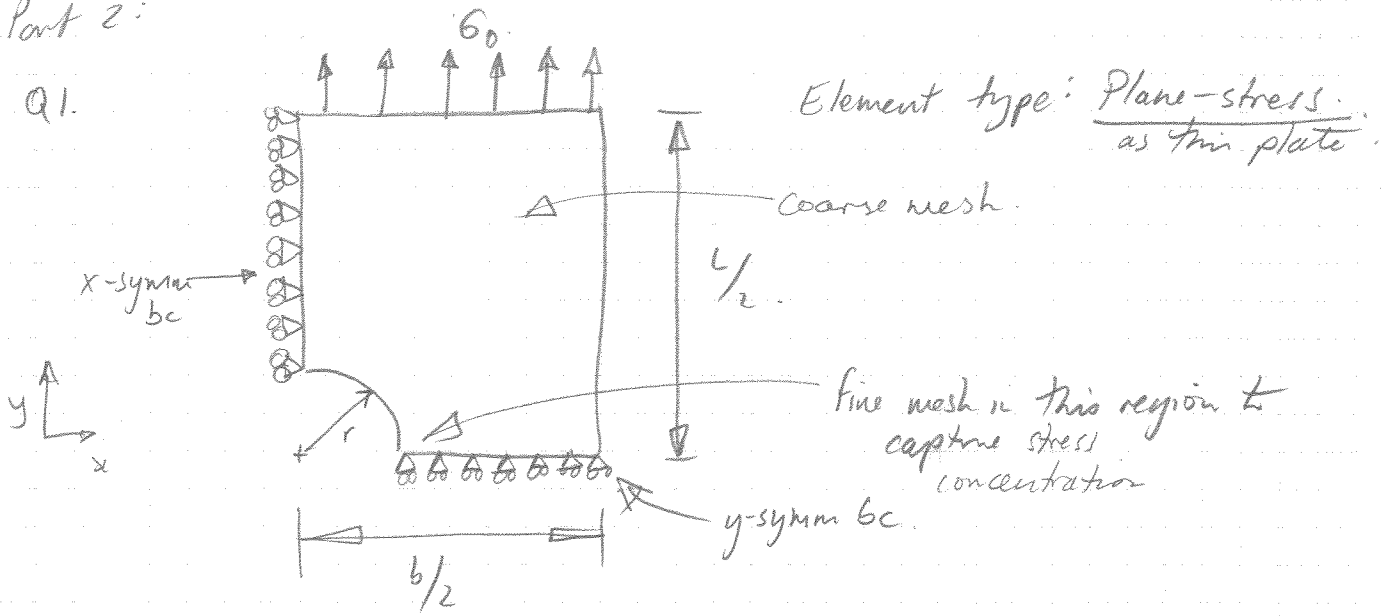 Part 2:
σ₀
Q1.
Element type: Plane-stress.
as thin plate.
coarse mesh.
L/2.
x-symm
bc
y
x
r
Fine mesh in this region to
capture stress
concentration
y-symm bc.
b/2